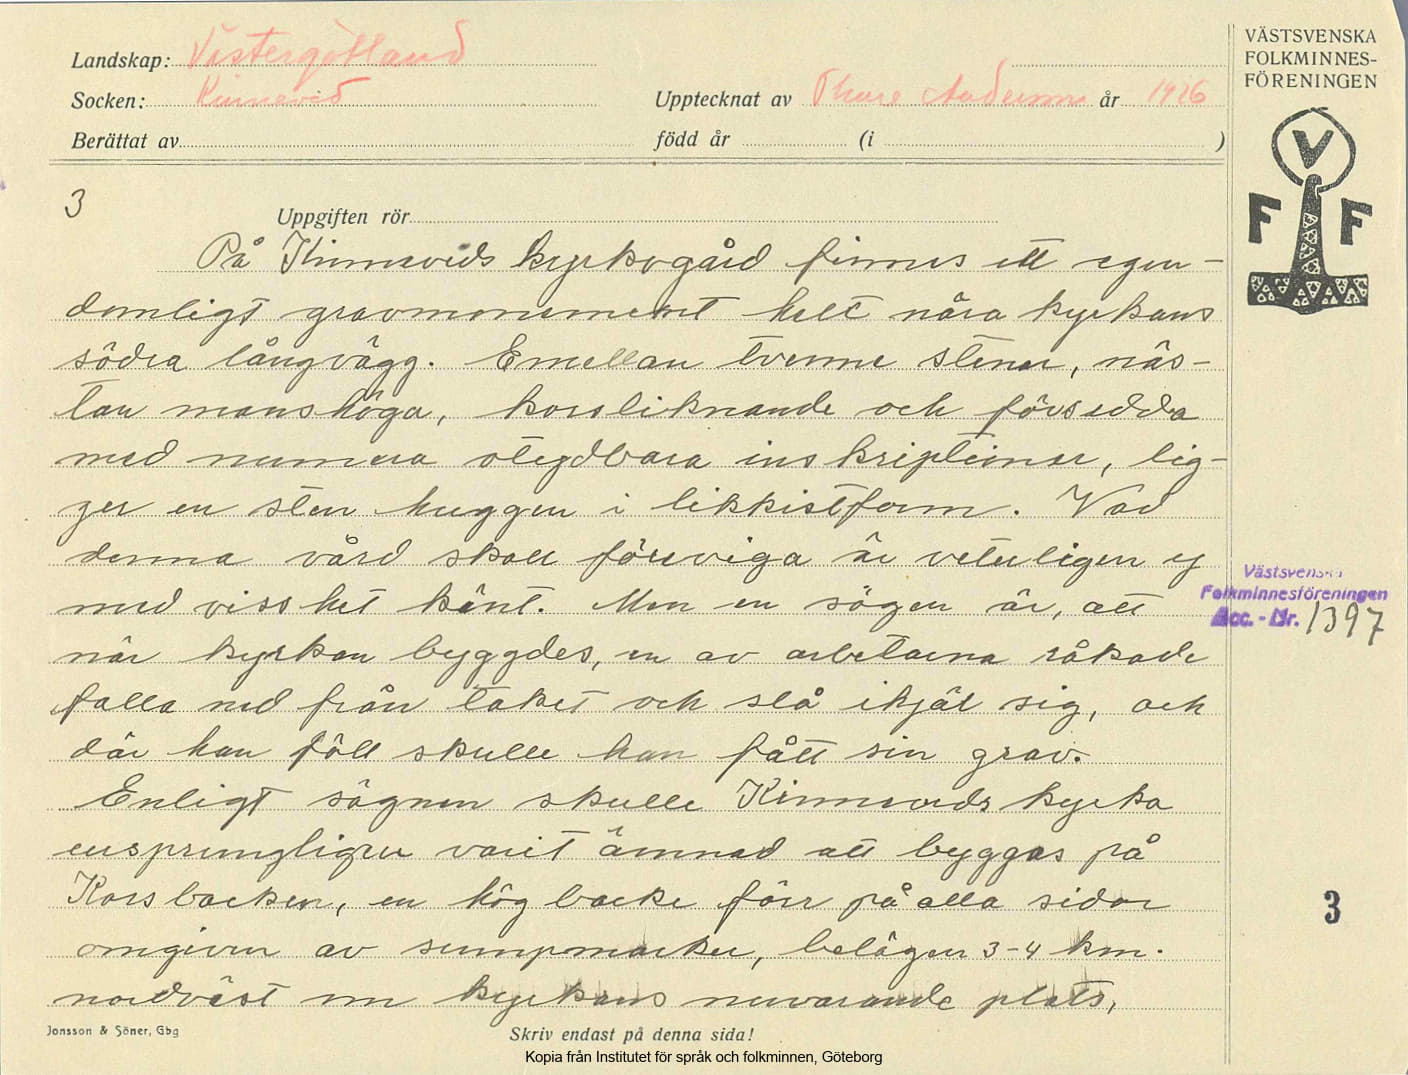 VÄSTSVENSKA
FOLKMINNES-
FÖRENINGEN
V
F F
Landskap: Västergötland
Socken: Kinneved
Upptecknat av Thure Andersson år 1926
Berättat av
född år (i )
3
Uppgiften rör
På Kinneveds kyrkogård finnes ett egen-
domligt gravmonument helt nära kyrkans
södra långvägg. Emellan tvenne stenar, näs-
tan manshöga, korsliknande och försedda
med numera otydbara inskriptioner, lig-
ger en sten huggen i likkistform. Vad
denna vård skall föreviga är veterligen ej
med visshet känt. Men en sägen är, att
när kyrkan byggdes, en av arbetarna råkade
falla ned från taket och slå ihjäl sig, och
där han föll skulle han fått sin grav.
Enligt sägnen skulle Kinneveds kyrka
ursprungligen varit ämnad att byggas på
Korsbacken, en hög backe förr på alla sidor
omgiven av sumpmarker, belägen 3-4 km.
nordväst om kyrkans nuvarande plats,
Västsvenska
Folkminnesföreningen
Acc. - Nr. 1397
3
Jonsson & Söner, Gbg
Skriv endast på denna sida!
Kopia från Institutet för språk och folkminnen, Göteborg